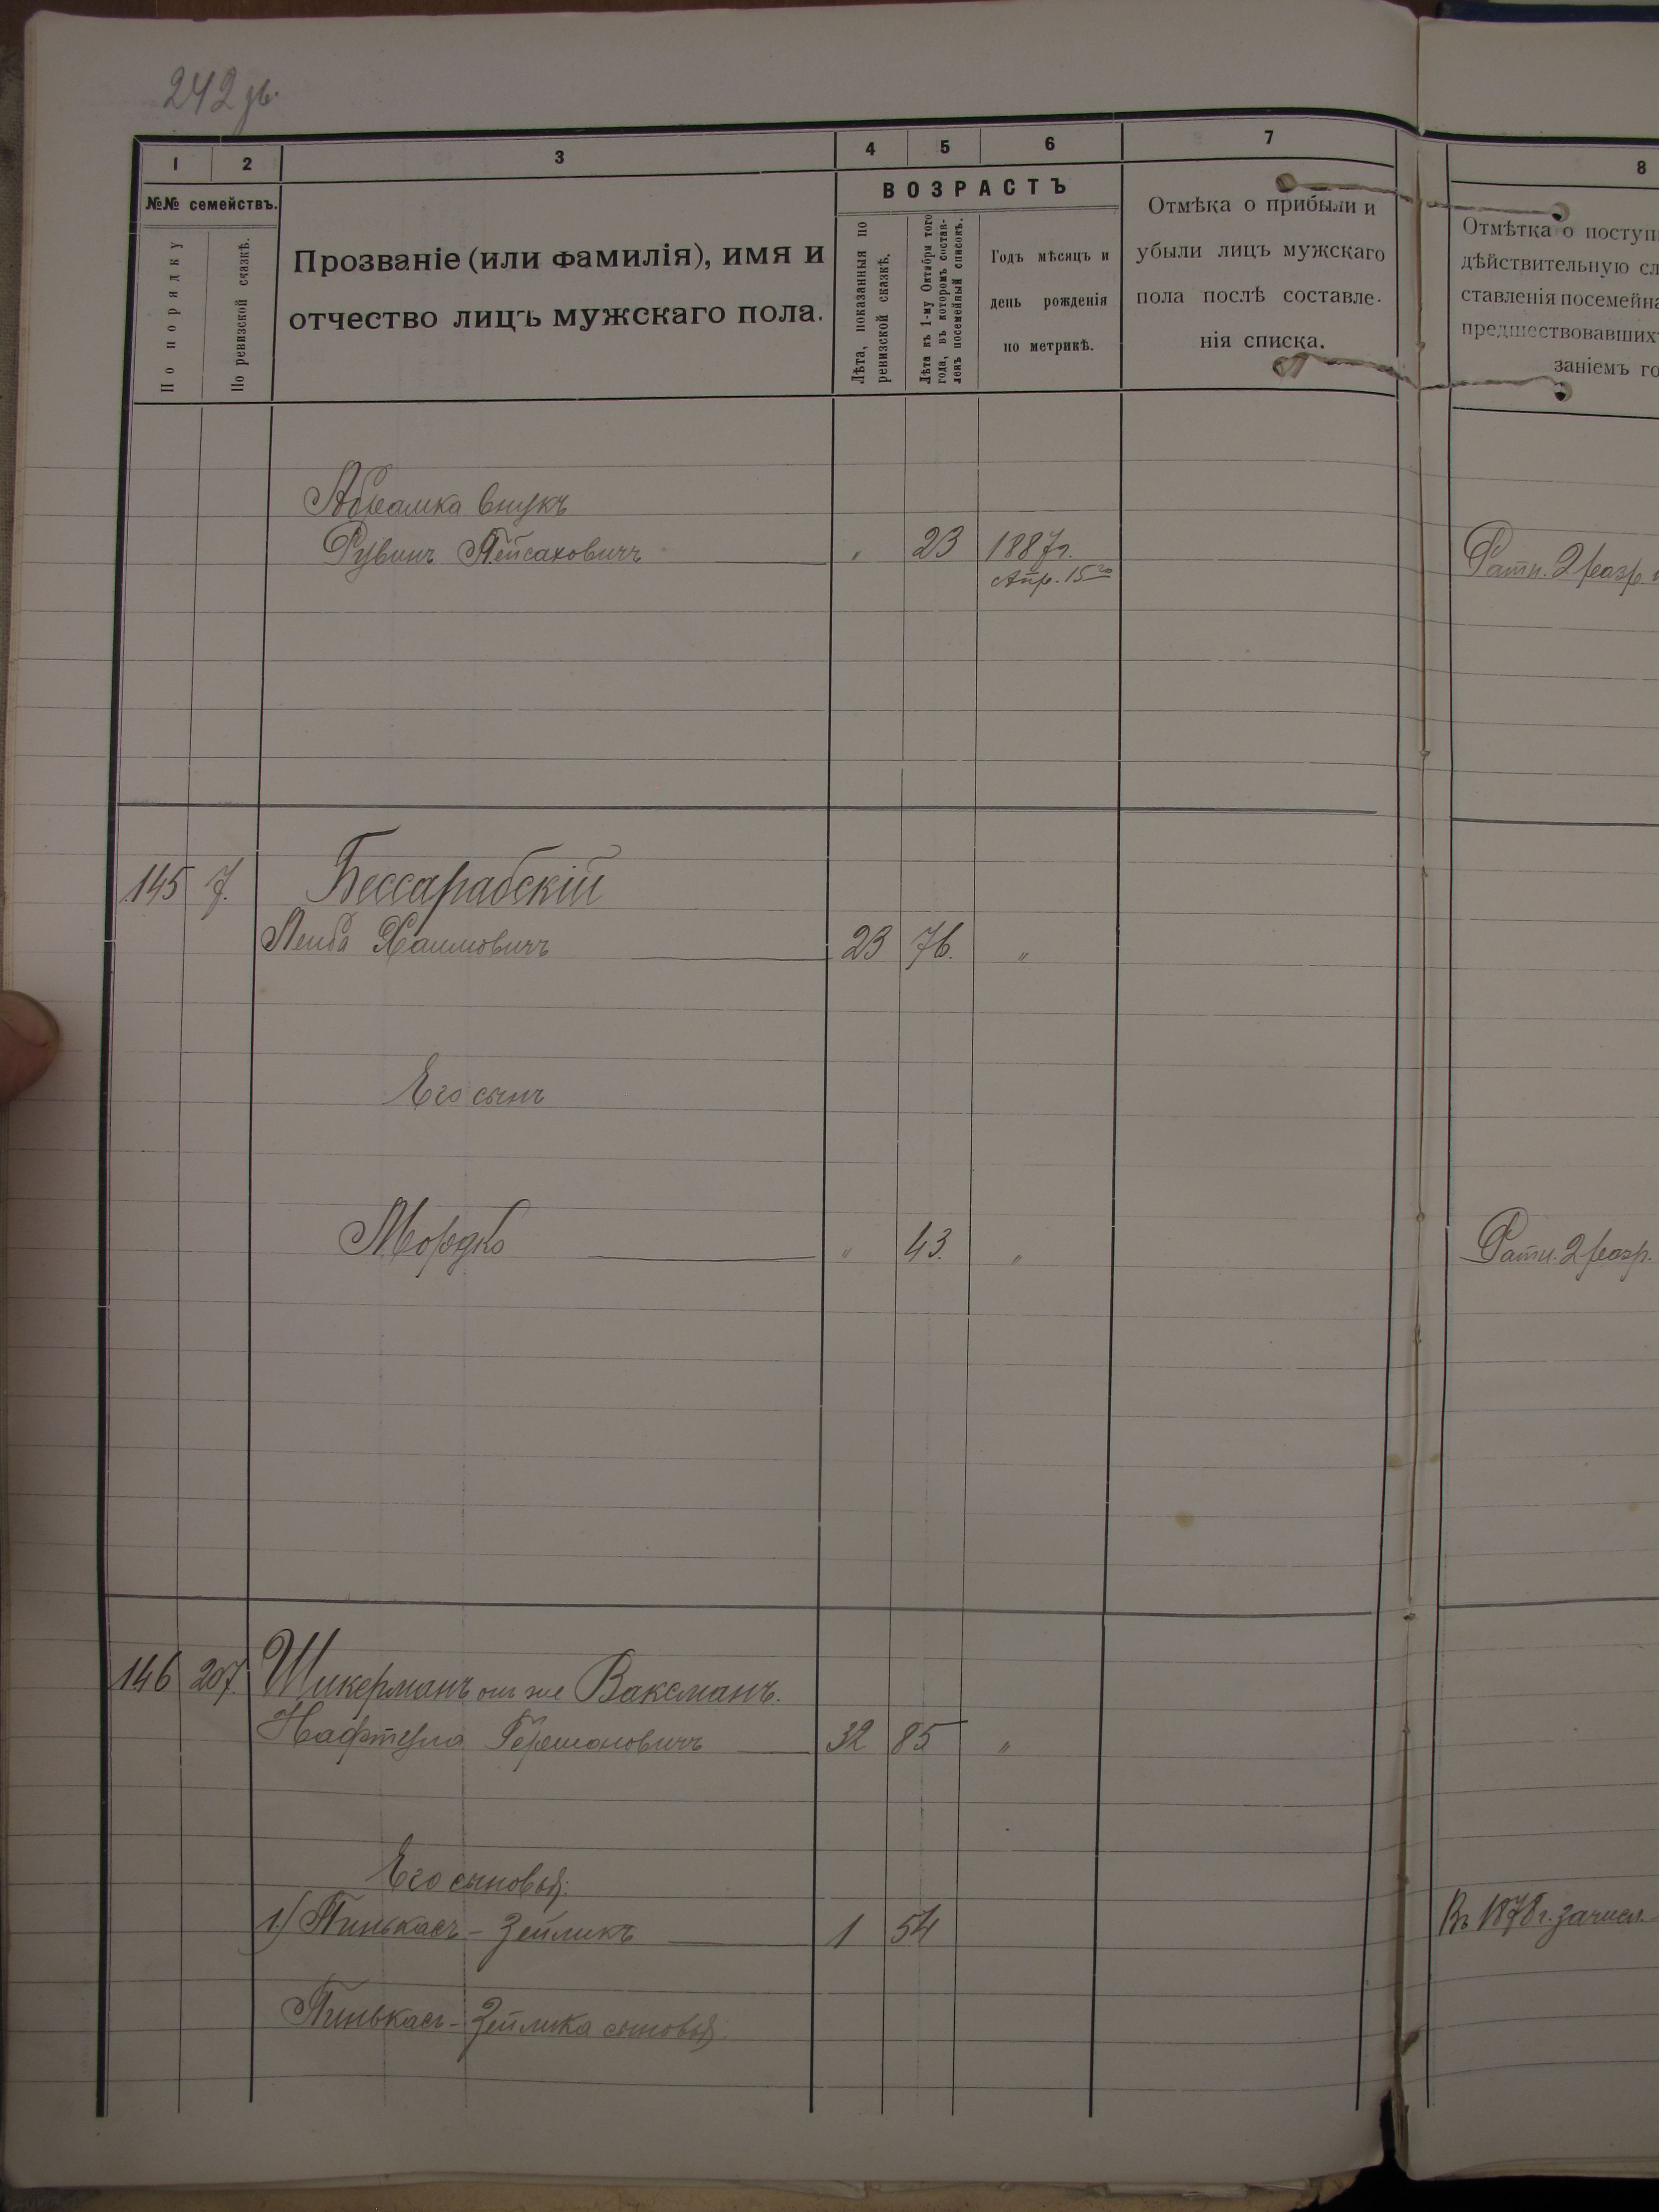 242 зв.
1
2
3
4
5
6
7
8
№№ семействъ.
По порядку
По ревизской сказкѣ.
Прозваніе (или фамилія), имя и
отчество лицъ мужскаго пола.
ВОЗРАСТЪ
Лѣта, показанныя по
ревизской сказкѣ.
Лѣта къ 1-му Октября того
года, въ которомъ состав-
ленъ посемейный списокъ.
Годъ мѣсяцъ и
день рожденія
по метрикѣ.
Отмѣка о прибыли и
убыли лицъ мужскаго
пола послѣ составле-
нія списка.
Отмѣтка о поступ
дѣйствительную сл
ставленія посемейна
предшествовавших
заніемъ го
Абрамка внукъ
Рувинъ Пейсаховичъ " 23 1887г.
Апр. 15го
Ратн. 2 разр.
145 7. Бессарабскій
Лейба Хаимовичъ 23 76. "
Его сынъ
Мордко " 43. "
Ратн. 2 разр.
146 207. Шикерманъ онъ же Ваксманъ.
Нафтула Гершоновичъ 32 85 "
Его сыновья:
1) Пинькасъ-Зейликъ 1 54
Въ 1878 г. зачисл.
Пинькасъ-Зейлика сыновья.